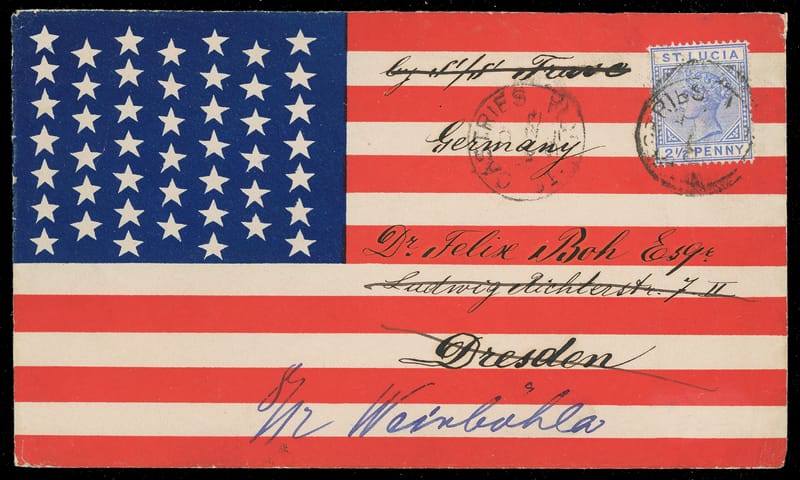 by S/S Trave
ST. LUCIA
POSTAGE
2½ PENNY
CASTRIES
CASTRIES
Germany
Dr. Felix Boh Esqr.
Ludwig Richterstr. 7 II
Dresden
Weinböhla